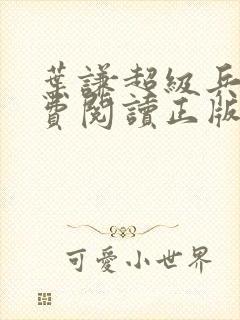 葉謙超級兵
費閱讀正版
可愛小世界